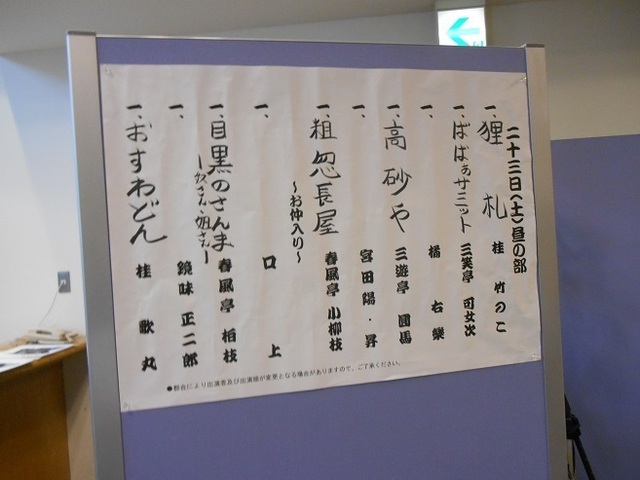 二十三日(土)昼の部
一、狸札 桂 竹のこ
一、ばばぁサミット 三笑亭 可女次
一、 橘 右樂
一、高砂や 三遊亭 圓馬
一、 宮田陽・昇
一、粗忽長屋 春風亭 小柳枝
〜お仲入り〜
一、 口上
一、目黒のさんま 春風亭 柏枝
一、 鏡味 正二郎
一、おすわどん 桂 歌丸
●都合により出演者及び出演順が変更となる場合がありますので、ご了承ください。